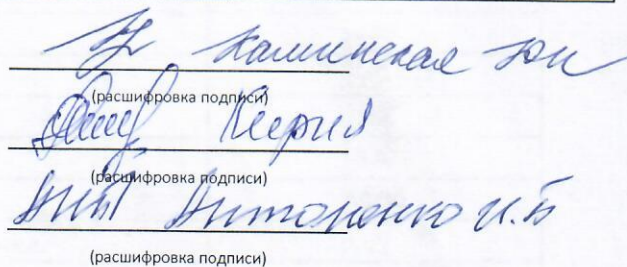 Каминская Юн
(расшифровка подписи)
Кирия
(расшифровка подписи)
Антоненко И.Б
(расшифровка подписи)